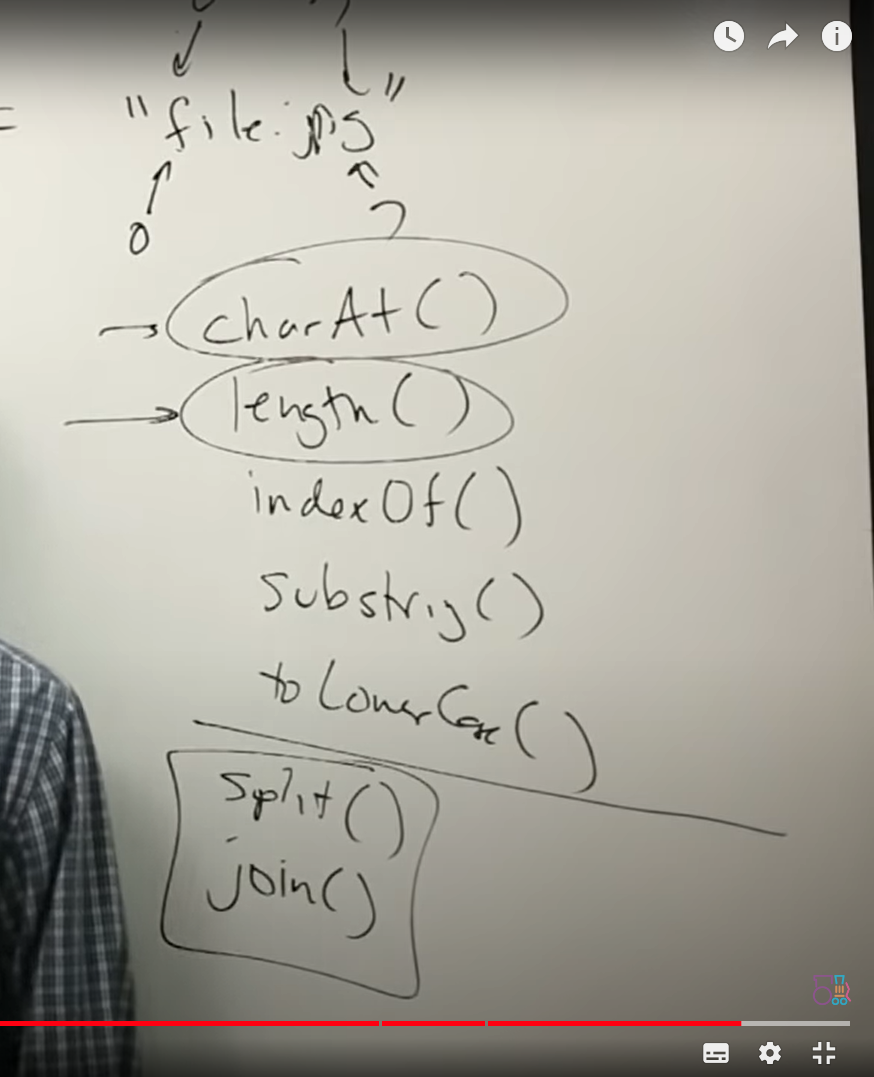 = "file.jpg"
0 7
charAt()
length()
indexOf()
substrig()
toLowerCase()
split()
join()